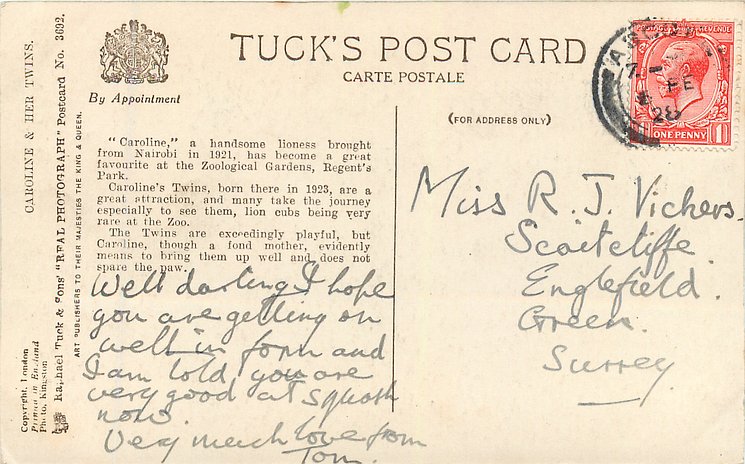 TUCK'S POST CARD
CARTE POSTALE
By Appointment
(FOR ADDRESS ONLY)
"Caroline," a handsome lioness brought
from Nairobi in 1921, has become a great
favourite at the Zoological Gardens, Regent's
Park.
Caroline's Twins, born there in 1923, are a
great attraction, and many take the journey
especially to see them, lion cubs being very
rare at the Zoo.
The Twins are exceedingly playful, but
Caroline, though a fond mother, evidently
means to bring them up well and does not
spare the paw.
Well darling I hope
you are getting on
well in form and
I am told you are
very good at squash
now.
Very much love from
Tom.
Miss R. J. Vickers.
Scaitcliffe
Englefield.
Green.
Surrey
REVENUE
ONE PENNY 1
FE
28
CAROLINE & HER TWINS.
Raphael Tuck & Sons' "REAL PHOTOGRAPH" Postcard No. 3692.
ART PUBLISHERS TO THEIR MAJESTIES THE KING & QUEEN.
Copyright. London
Printed in England
Photo, Kingston